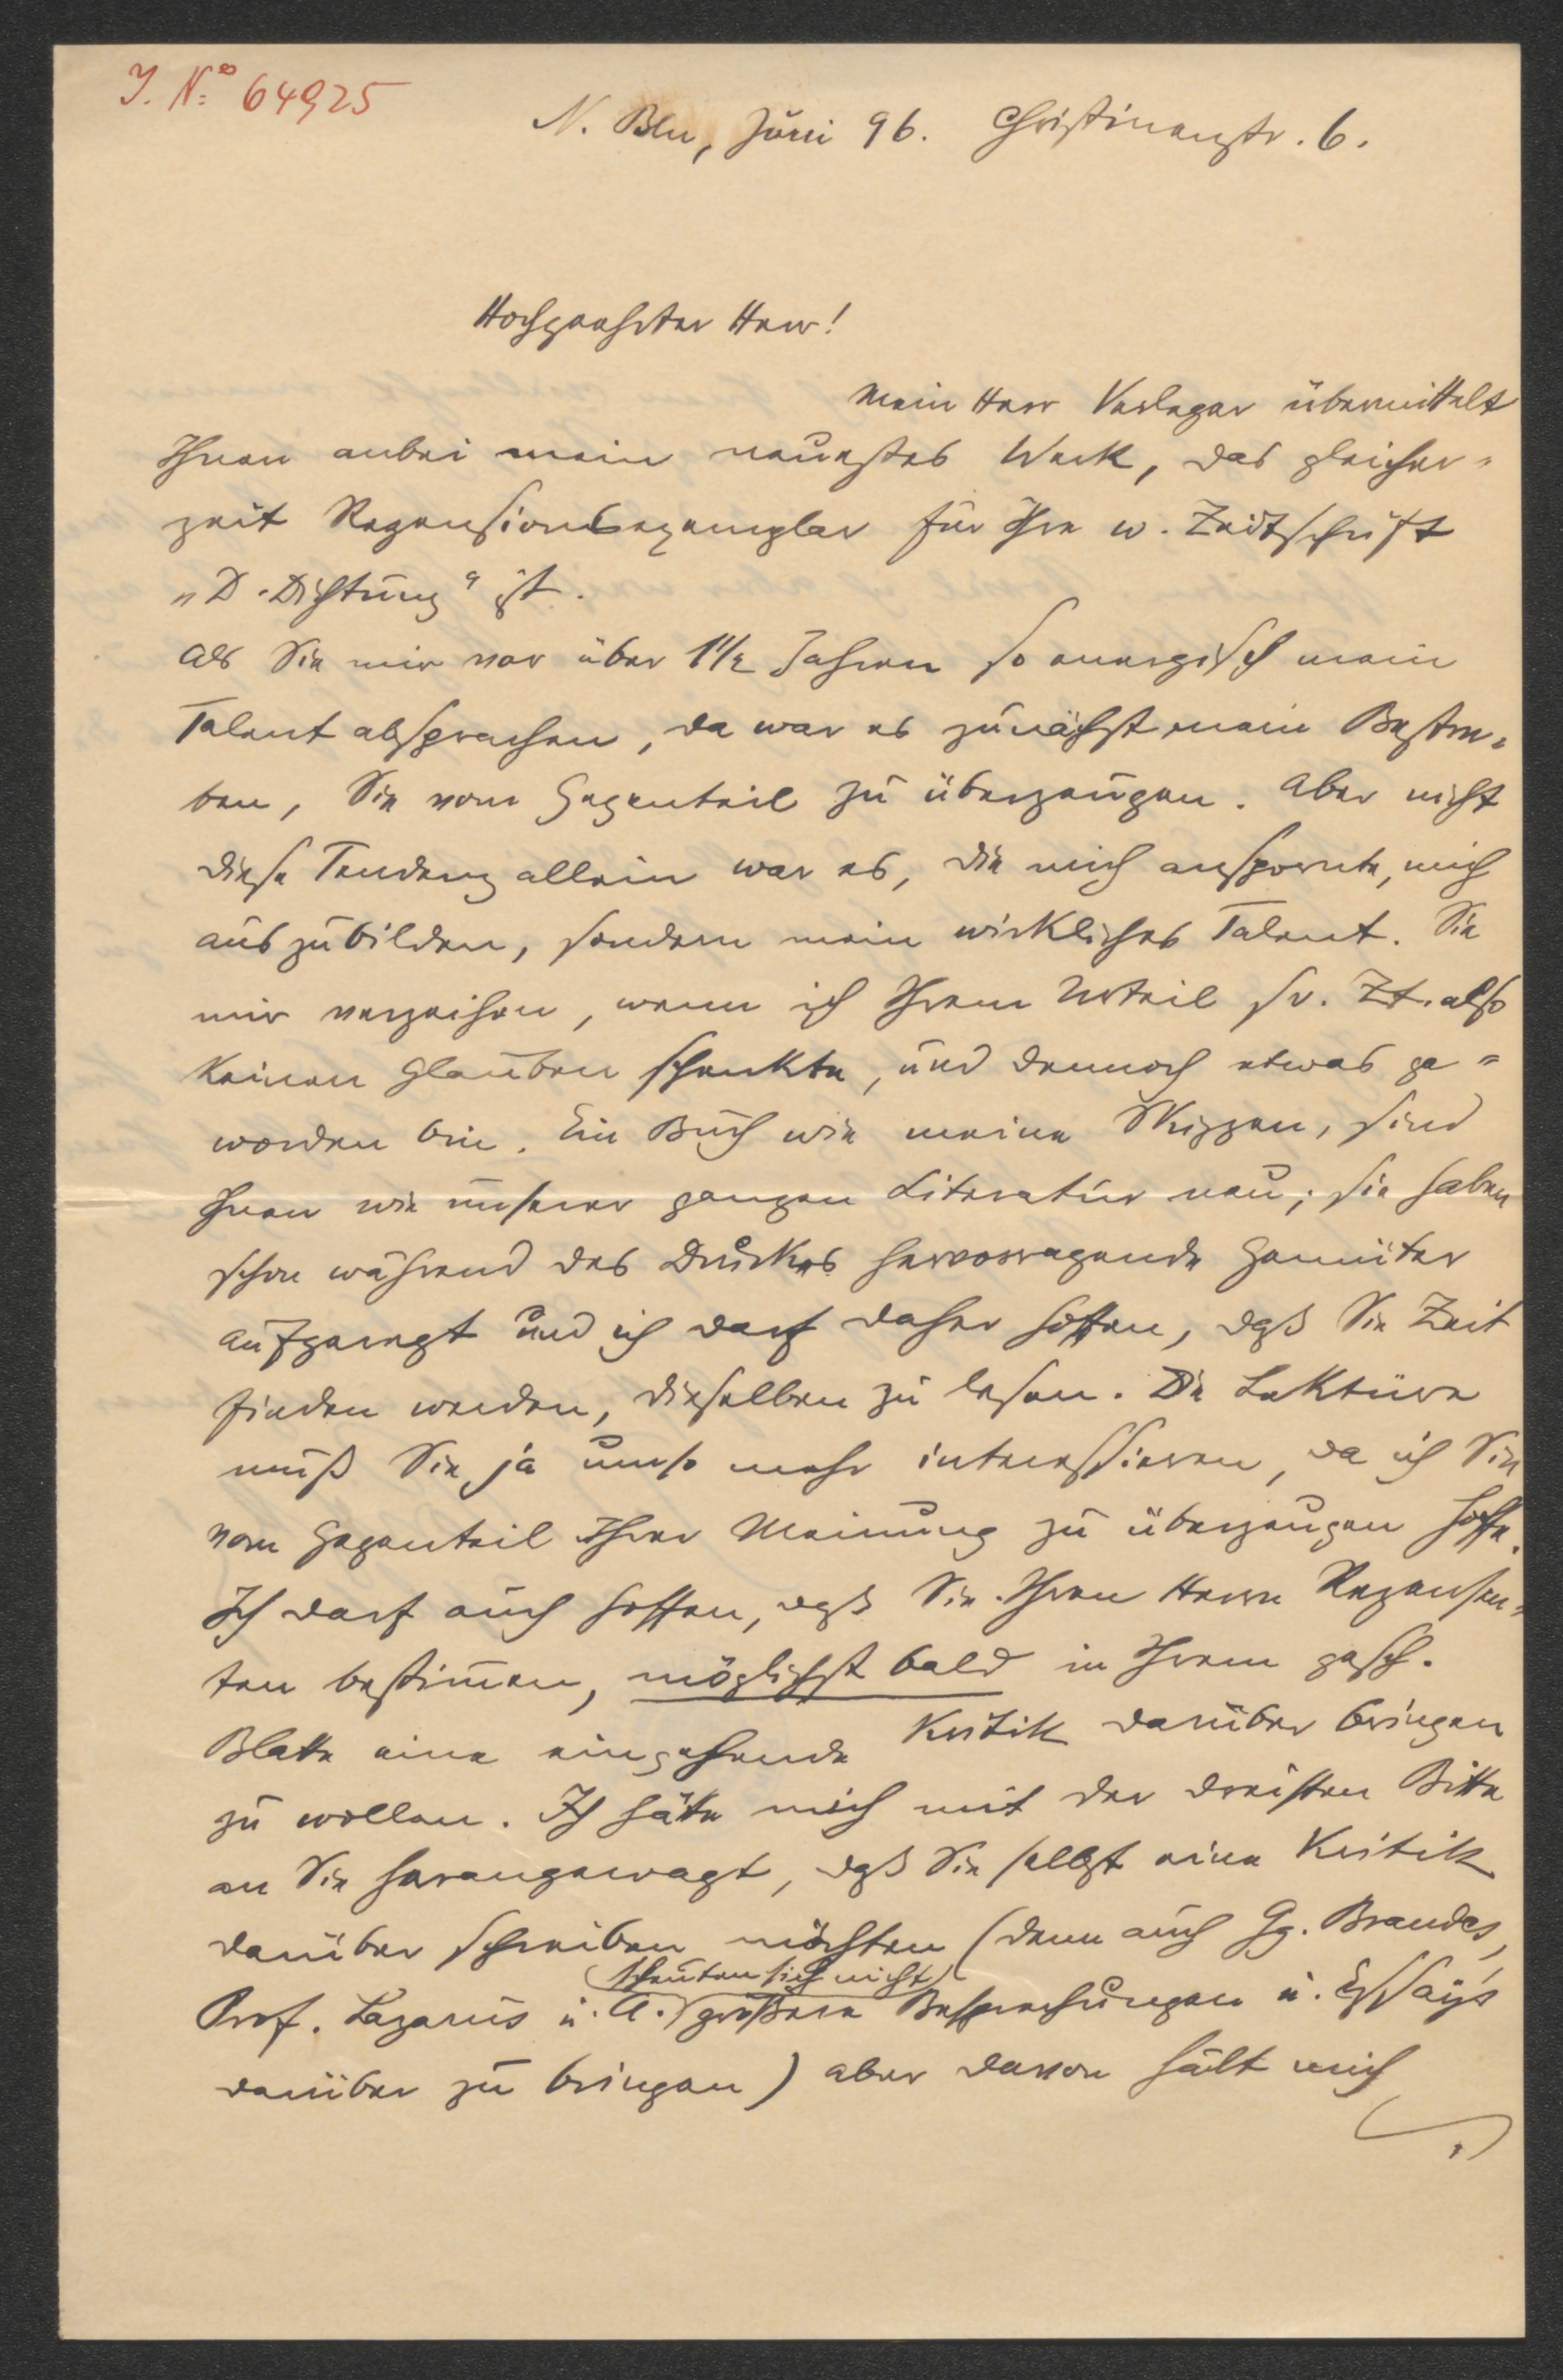 J. No 64925
N. Bln, Juni 96. Christinenstr. 6.
Hochgeehrter Herr!
Mein Herr Verleger übermittelt
Ihnen anbei mein neuestes Werk, das gleicher-
zeit Rezensionsexemplar für Ihre w. Zeitschrift
„D. Dichtung“ ist.
Als Sie mir vor über 1½ Jahren so energisch mein
Talent absprachen, da war es zunächst mein Bestre-
ben, Sie vom Gegenteil zu überzeugen. Aber nicht
diese Tendenz allein war es, die mich anspornte, mich
auszubilden, sondern mein wirkliches Talent. Sie
mir verzeihen, wenn ich Ihrem Urteil sr. Zt. also
keinen Glauben schenkte, und dennoch etwas ge-
worden bin. Ein Buch wie meine Skizzen, sind
Ihnen wie unserer ganzen Literatur neu; sie haben
schon während des Druckes hervorragende Gemüter
aufgeregt und ich darf daher hoffen, daß Sie Zeit
finden werden, dieselben zu lesen. Die Lektüre
muß Sie ja umso mehr interessieren, da ich Sie
vom Gegenteil Ihrer Meinung zu überzeugen hoffe.
Ich darf auch hoffen, daß Sie Ihren Herrn Rezensen-
ten bestimmen, möglichst bald in Ihrem gesch.
Blatte eine eingehende Kritik darüber bringen
zu wollen. Ich hätte mich mit der dreisten Bitte
an Sie herangewagt, daß Sie selbst eine Kritik
darüber schreiben möchten (denn auch Gg. Brandes,
scheuten sich nicht
Prof. Lazarus u. A. größere Besprechungen u. Essay's
darüber zu bringen) aber davon hält mich